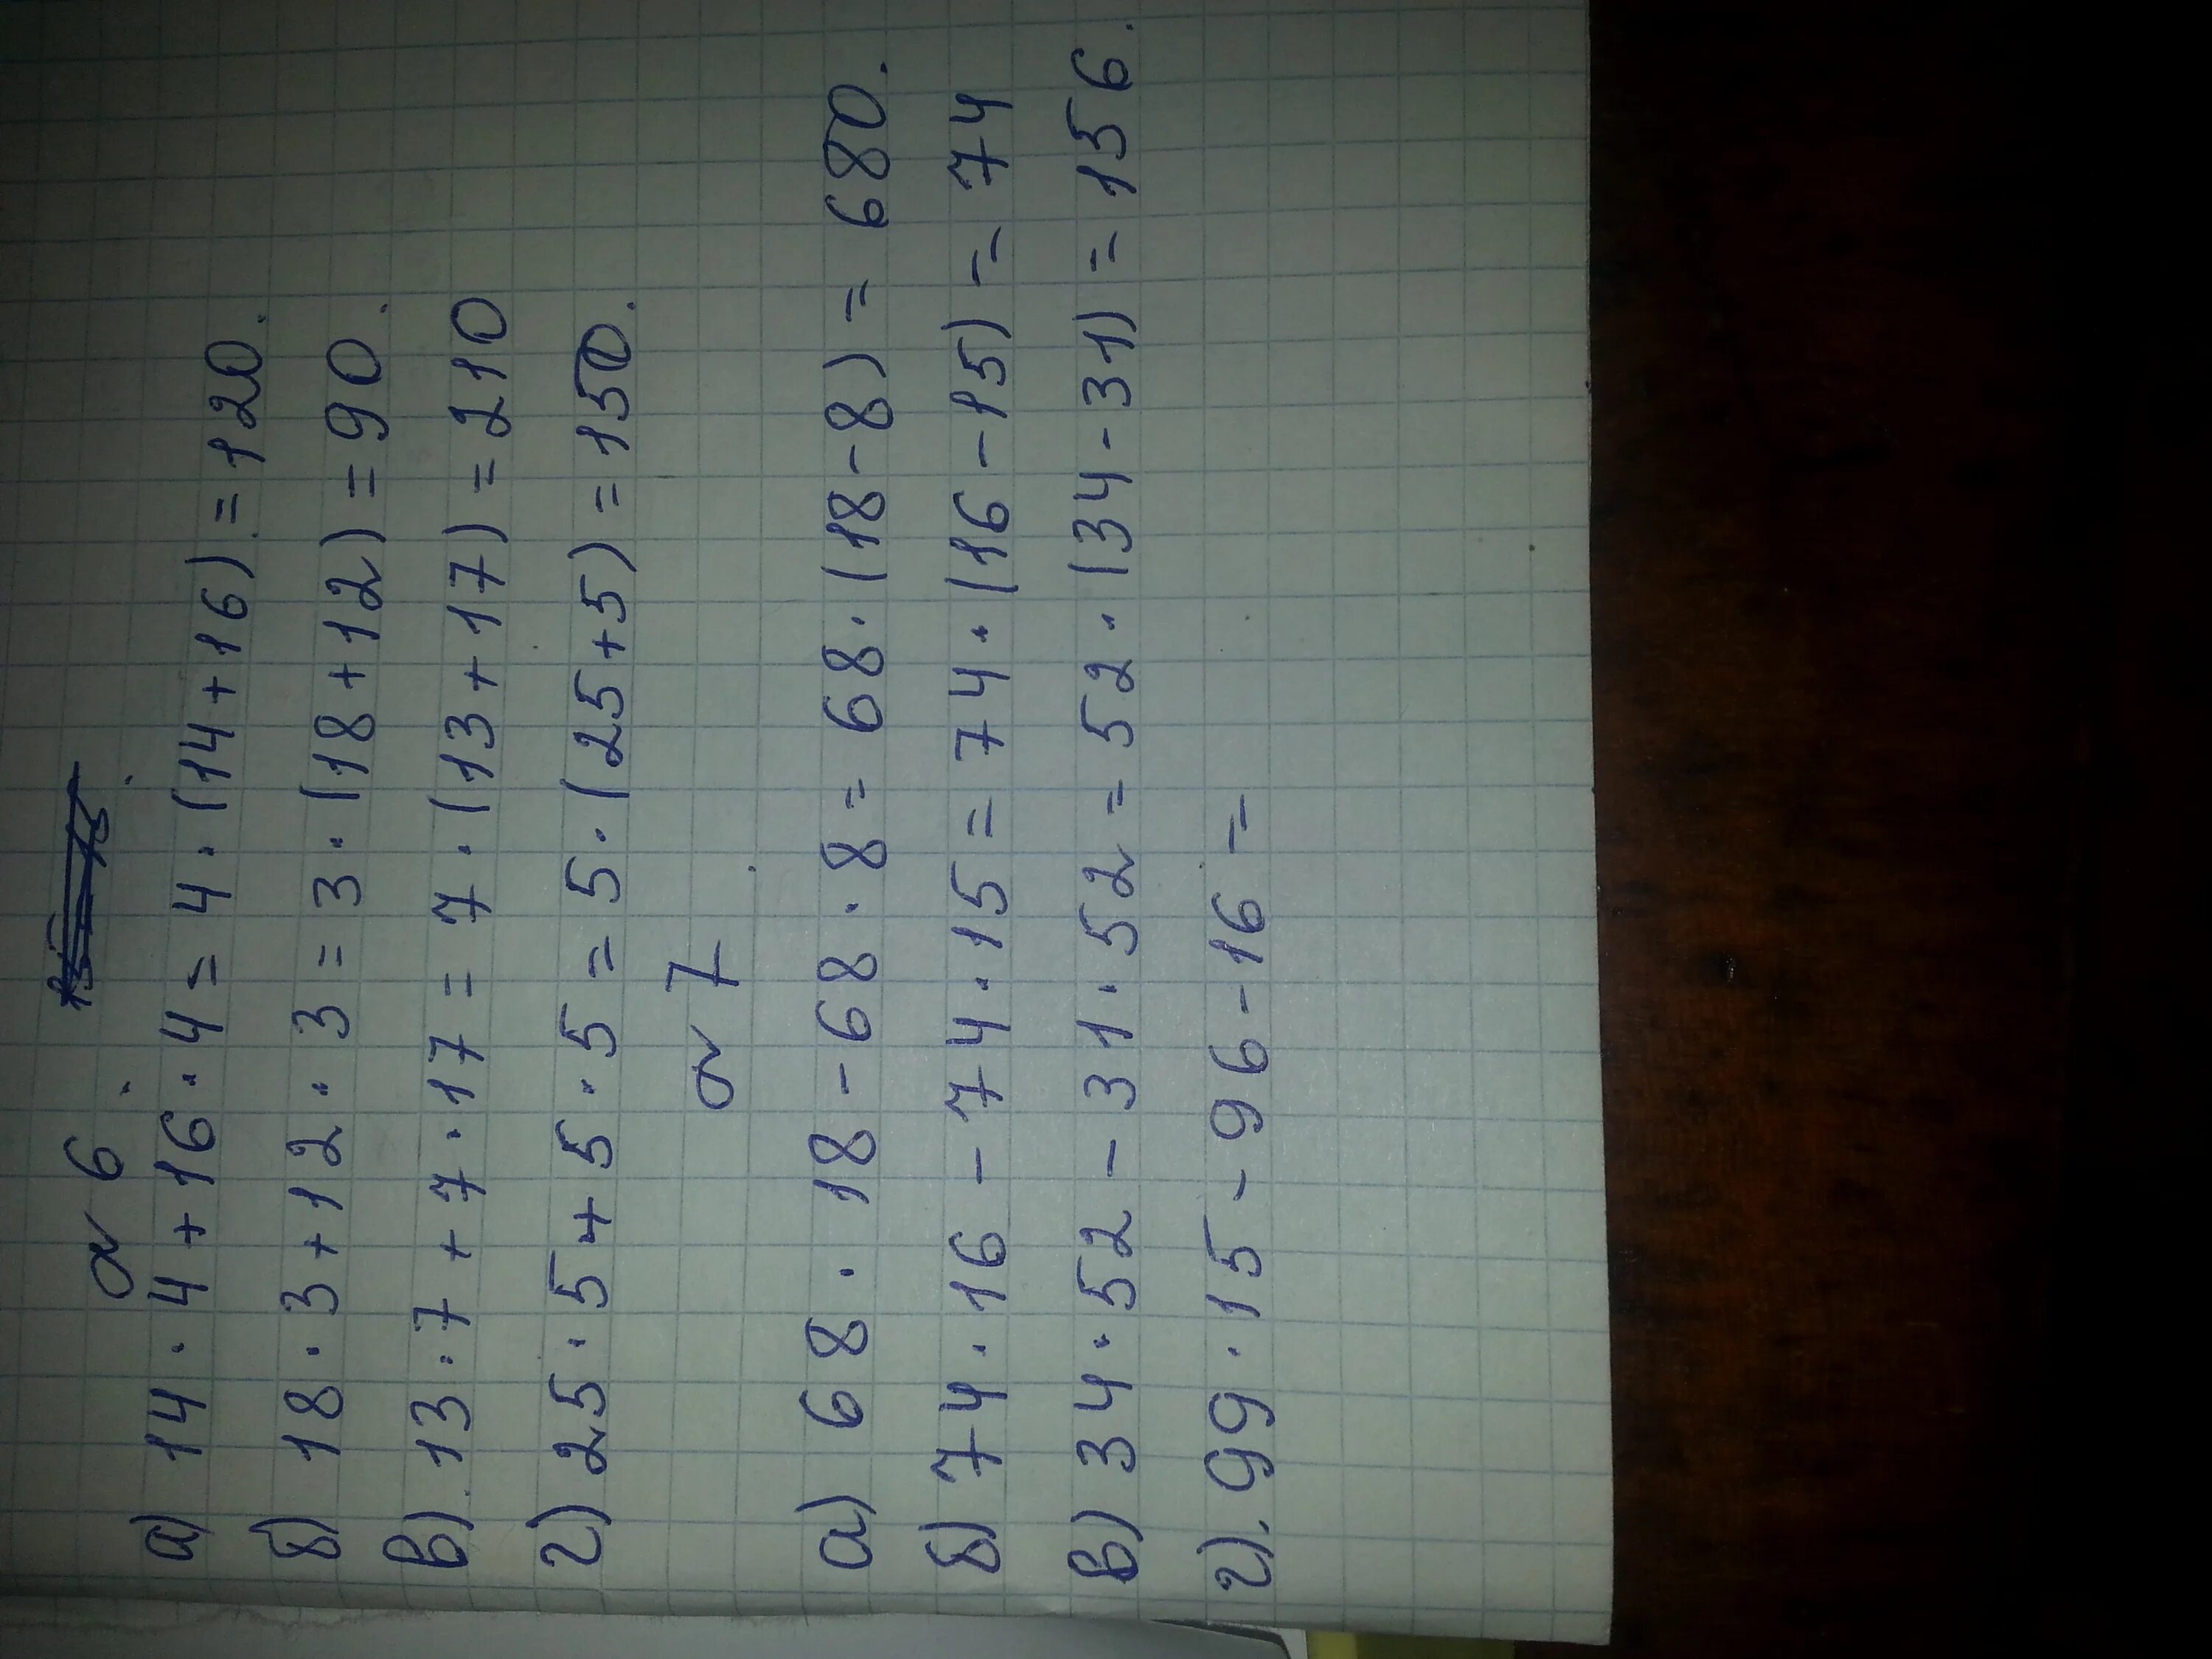 № 6
а) 14 · 4 + 16 · 4 = 4 · (14 + 16) = 120.
б) 18 · 3 + 12 · 3 = 3 · (18 + 12) = 90.
в). 13 · 7 + 7 · 17 = 7 · (13 + 17) = 210
г) 25 · 5 + 5 · 5 = 5 · (25 + 5) = 150.
№ 7
а) 68 · 18 - 68 · 8 = 68 · (18 - 8) = 680.
б) 74 · 16 - 74 · 15 = 74 · (16 - 15) = 74
в) 34 · 52 - 31 · 52 = 52 · (34 - 31) = 156.
г). 99 · 15 - 96 - 16 =